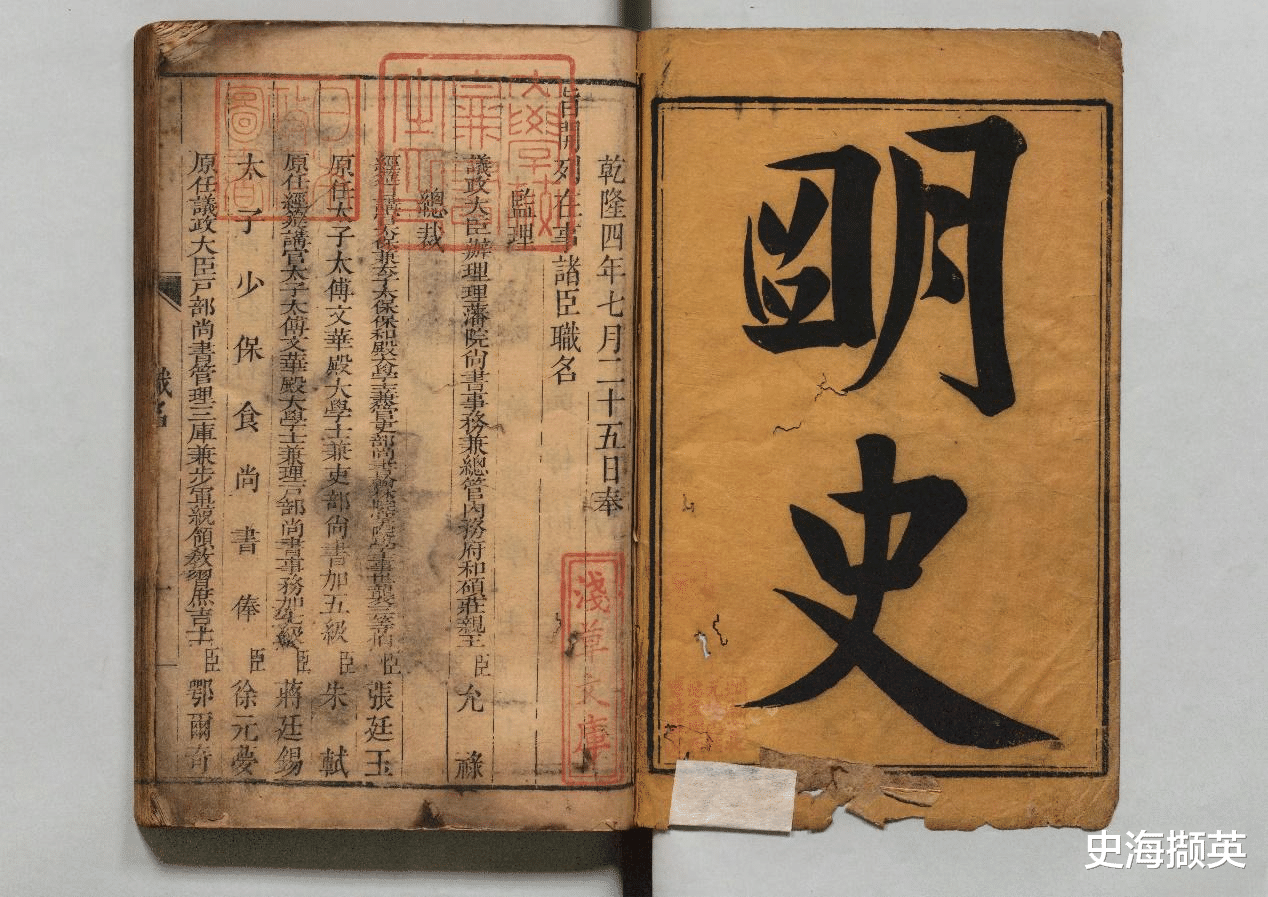 明史
乾隆四年七月二十五日奉
旨開列在事諸臣職名
監理
議政大臣辦理理藩院尚書事務兼總管內務府和碩莊親王臣允祿
總裁
經筵講官少保兼太子太保保和殿大學士兼管吏部尚書翰林院掌院學士事世襲三等伯臣張廷玉
原任太子太傅文華殿大學士兼吏部尚書加五級臣朱軾
原任經筵講官太子太傅文華殿大學士兼理戶部尚書事務加七級臣蔣廷錫
太子少保食尚書俸臣徐元夢
原任議政大臣戶部尚書管理三庫兼步軍統領教習庶吉士臣鄂爾奇
職名
淺草文庫
史海撷英